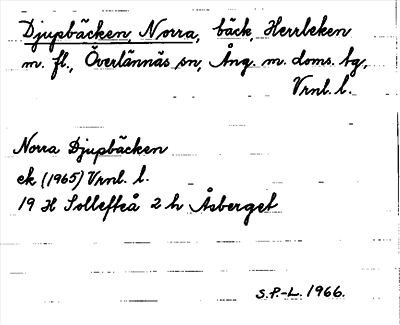 Djupbäcken, Norra, bäck, Herrleken
m. fl., Överlännäs sn, Ång. m. doms. tg,
Vrnl. l.
Norra Djupbäcken
ek (1965) Vrnl. l.
19 H Sollefteå 2 h Åsberget
S.P.-L. 1966.